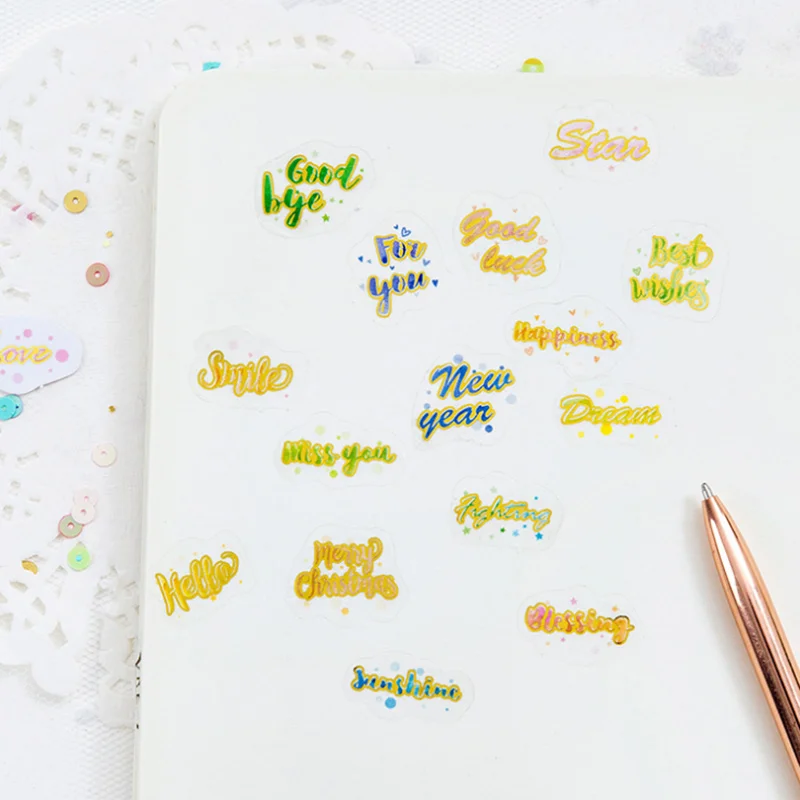 Star
Good
bye
For
you
Good
luck
Best
wishes
Happiness
Love
Smile
New
year
Dream
Miss you
Fighting
Hello
Merry
Christmas
Blessing
Sunshine